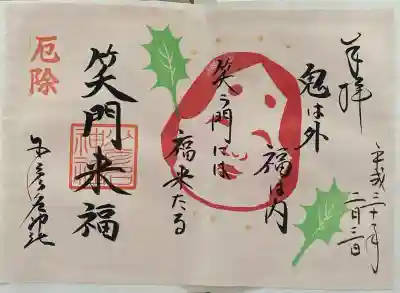 奉拝
平成三十年
二月三日
鬼は外
福は内
笑う門には
福来たる
笑門来福
厄除